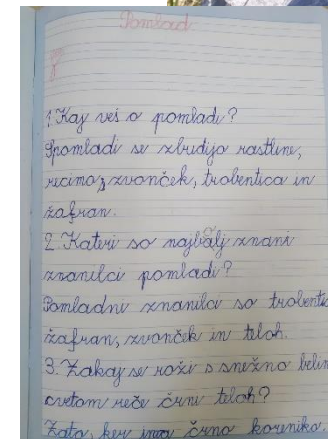 Pomlad
1. Kaj veš o pomladi?
Spomladi se zbudijo rastline,
recimo, zvonček, trobentica in
žafran.
2. Kateri so najbålj znani
znanilci pomladi?
Pomladni znanilci so trobentic
žafran, zvonček in teloh.
3. Zakaj se roži s snežno belim
cvetom reče črni teloh?
Zato, ker ima črno koreniko.